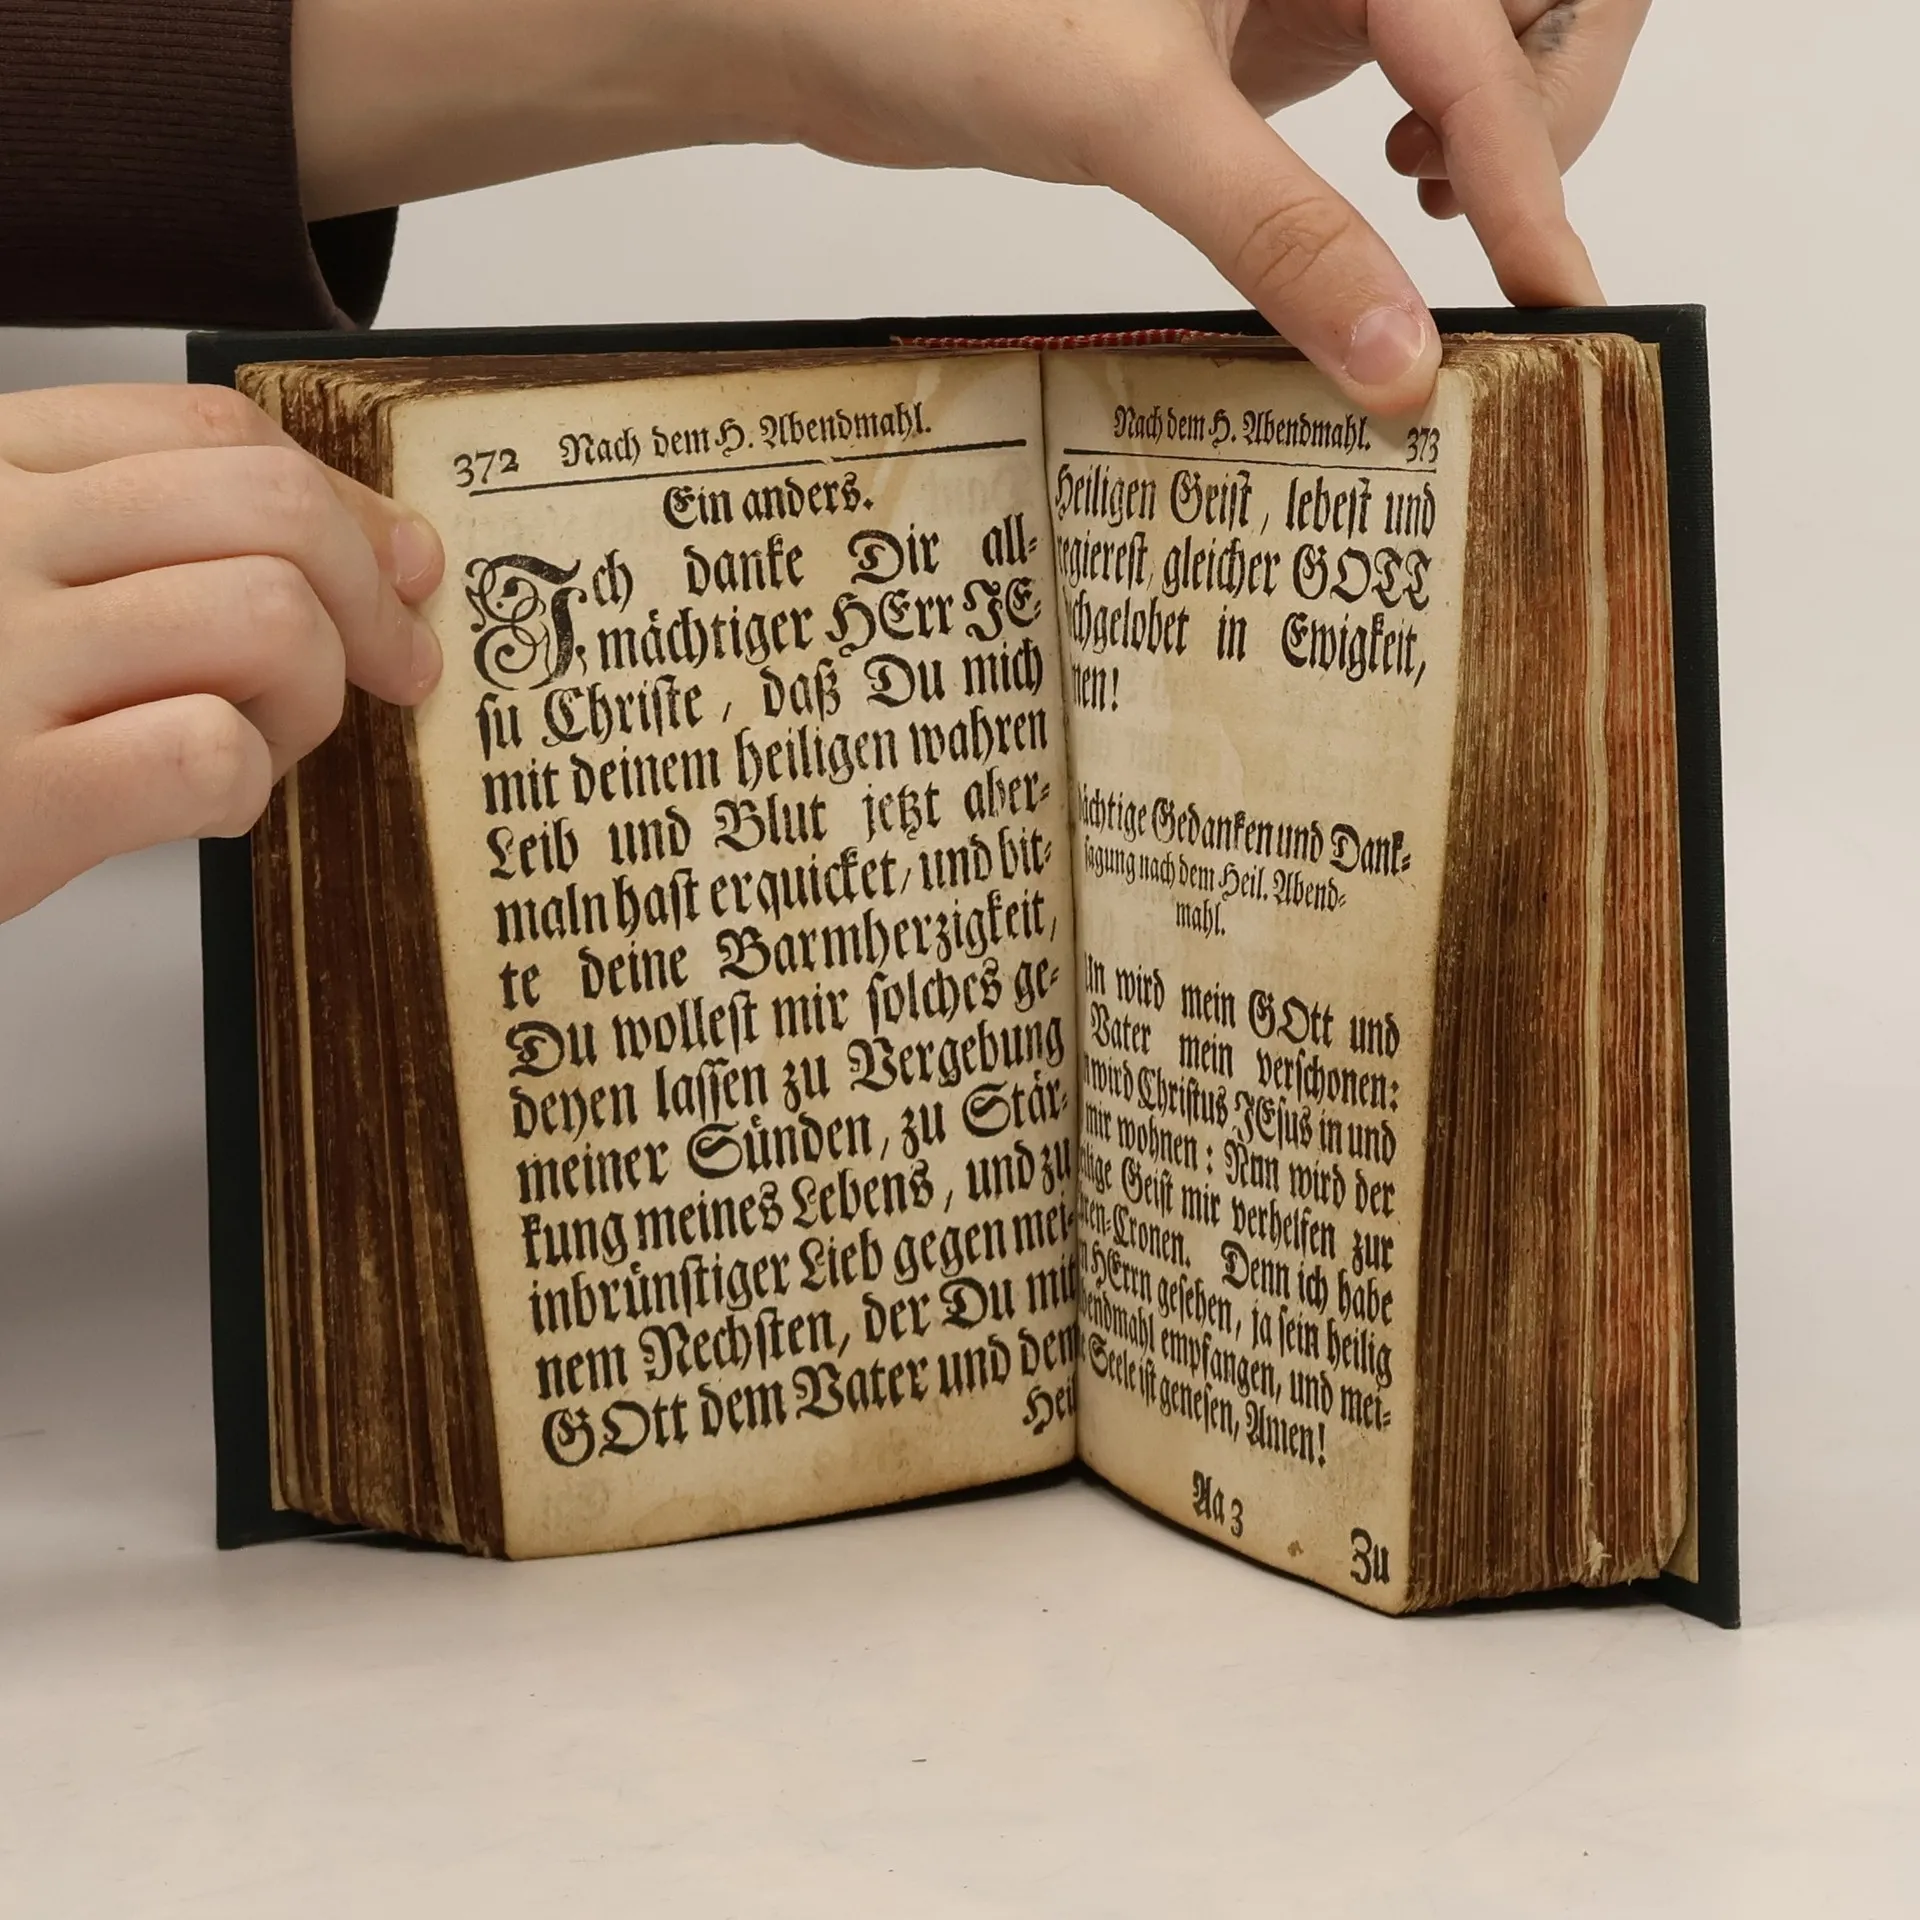 372 Nach dem H. Abendmahl.
Ein anders.
Ich danke Dir all-
mächtiger HErr JE-
su Christe, daß Du mich
mit deinem heiligen wahren
Leib und Blut jetzt aber-
maln hast erquicket, und bit-
te deine Barmherzigkeit,
Du wollest mir solches ge-
deyen lassen zu Vergebung
meiner Sünden, zu Stär-
kung meines Lebens, und zu
inbrünstiger Lieb gegen mei-
nem Nechsten, der Du mit
GOtt dem Vater und dem
Heil
Nach dem H. Abendmahl. 373
Heiligen Geist, lebest und
regierest, gleicher GOTT
chgelobet in Ewigkeit,
men!
ächtige Gedanken und Dank-
sagung nach dem Heil. Abend-
mahl.
Un wird mein GOtt und
Vater mein verschonen:
wird Christus JEsus in und
mir wohnen: Nun wird der
Geist mir verhelfen zur
ren-Cronen. Denn ich habe
HErrn gesehen, ja sein heilig
bendmahl empfangen, und mei-
Seele ist genesen, Amen!
Aa 3
Zu